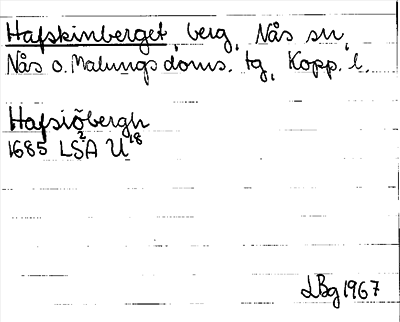 Hafskinberget, berg, Nås sn,
Nås o. Malungs doms. tg, Kopp. l.
Hafsiöbergh
1685 LSA U²18
LBg 1967